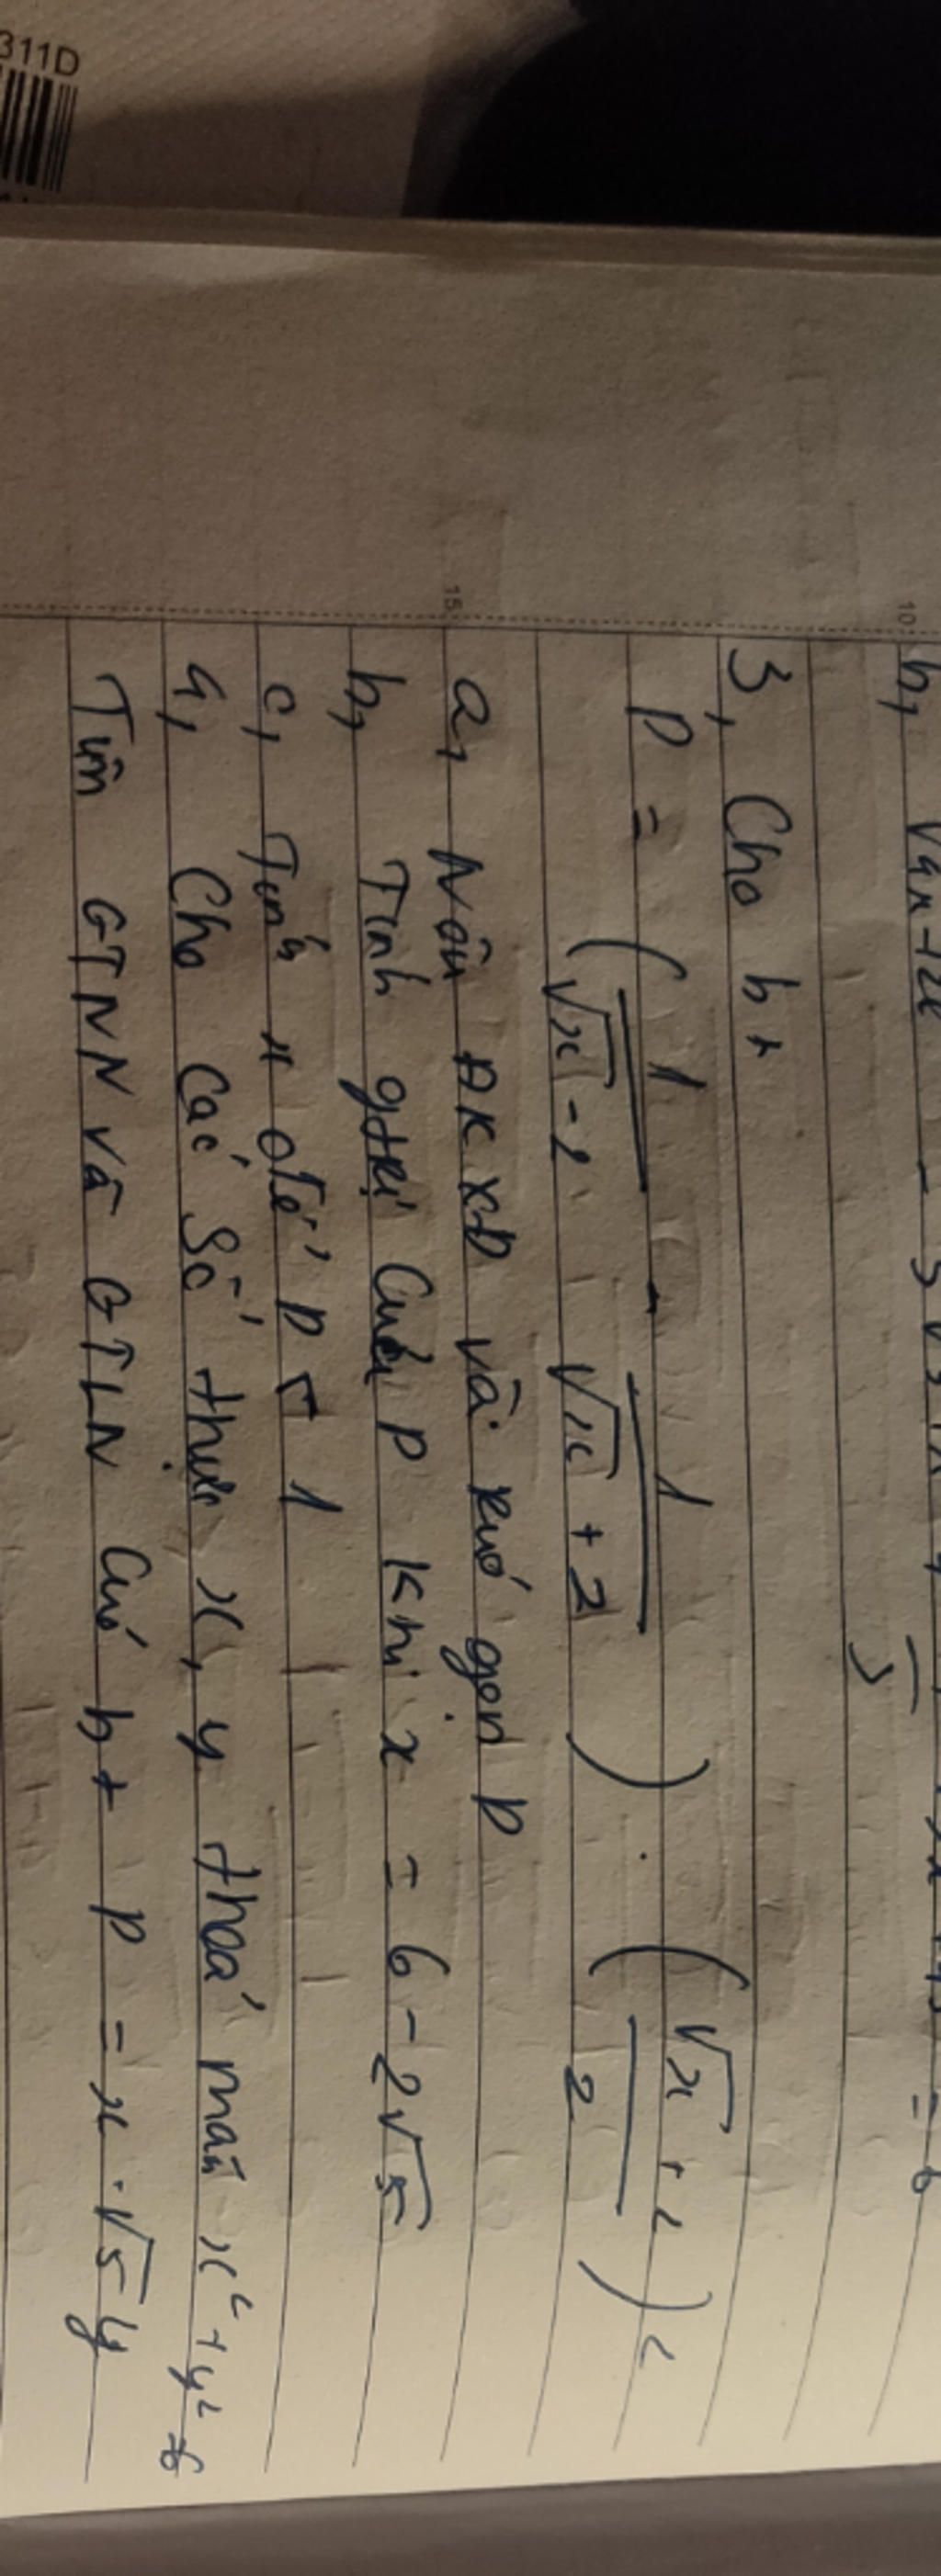 311D
10
3, Cho bt
P = ( 1/(√x - 2) - 1/(√x + 2) ) . ( (√x + 2)/2 )²
15
a, Nêu ĐKXĐ và rút gọn P
b, Tính gtrị của P khi x = 6 - 2√5
c, Tính x để P = 1
4, Cho các số thực x, y thoả mãn x² + y² = 6
Tìm GTNN và GTLN của bt P = x . √5 y